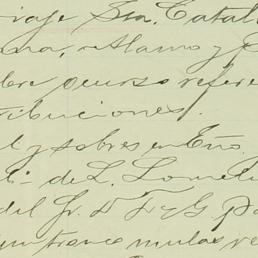 viaje Sra. Catal
ana, Alamo y
bre curso refere
tribuciones.
l y sobres en Eno.
de L. Lomel
del Sr. D. F y G pa
un tronco mulas ve